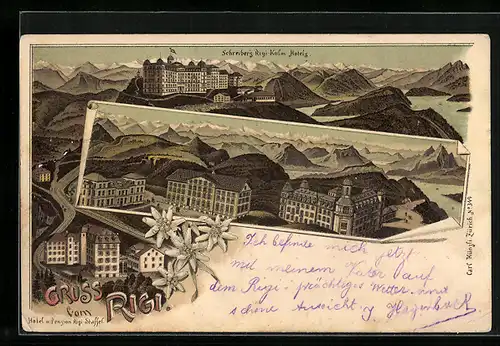 Schreiberg Rigi-Kulm Hotels
GRUSS
vom RIGI.
Hôtel u. Pension Rigi-Staffel
Carl Künzli Zürich No 344
Ich befinde mich jetzt
mit meinem Vater auf
dem Rigi. prächtiges Wetter und
schöne Aussicht.